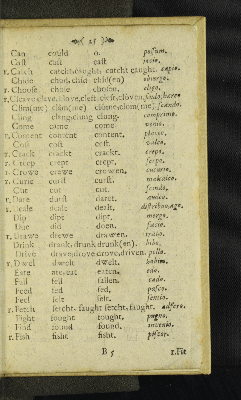 25
Can could o. possum.
Cast cast cast jacio.
r. Catch catcht, caught, catcht caught. capio.
Chide chod, chid chid(en) objurgo.
r. Choose chose chosen. eligo.
r. Cleave clave, clove, cleft, cleft, cloven. findo, hæreo
Clim(me) clom(me) clomme, clom(me) scando.
Cling clang, clung clung. comprimo.
Come came come venio.
r. Content content content. placeo.
Cost cost cost. valeo.
r. Crack crackt crackt. crepo.
r. Creep crept crept. serpo.
r. Crowe crewe crowen. cucurio.
r. Curse curst curst. maledico.
Cut cut cut. scindo.
r. Dare durst darct. audeo.
r. Deale dealt dealt. distribuo, ago.
Dip dipt dipt. mergo.
Doe did doen. facio.
r. Drawe drewe drawen. traho.
Drink drank, drunk drunk(en). bibo.
Drive drave, drove drove, driven. pello.
r. Dwel dwelt dwelt. habito.
Eate ate, eat eaten. edo.
Fall fell fallen. cado.
Feed fed fed. pasco.
Feel felt felt. sentio.
r. Fetch fetcht, faught fetcht, faught. adfero.
Fight fought fought. pugno.
Find found found. invenio.
r. Fish fisht fisht. piscor.
B 5 r. Fit